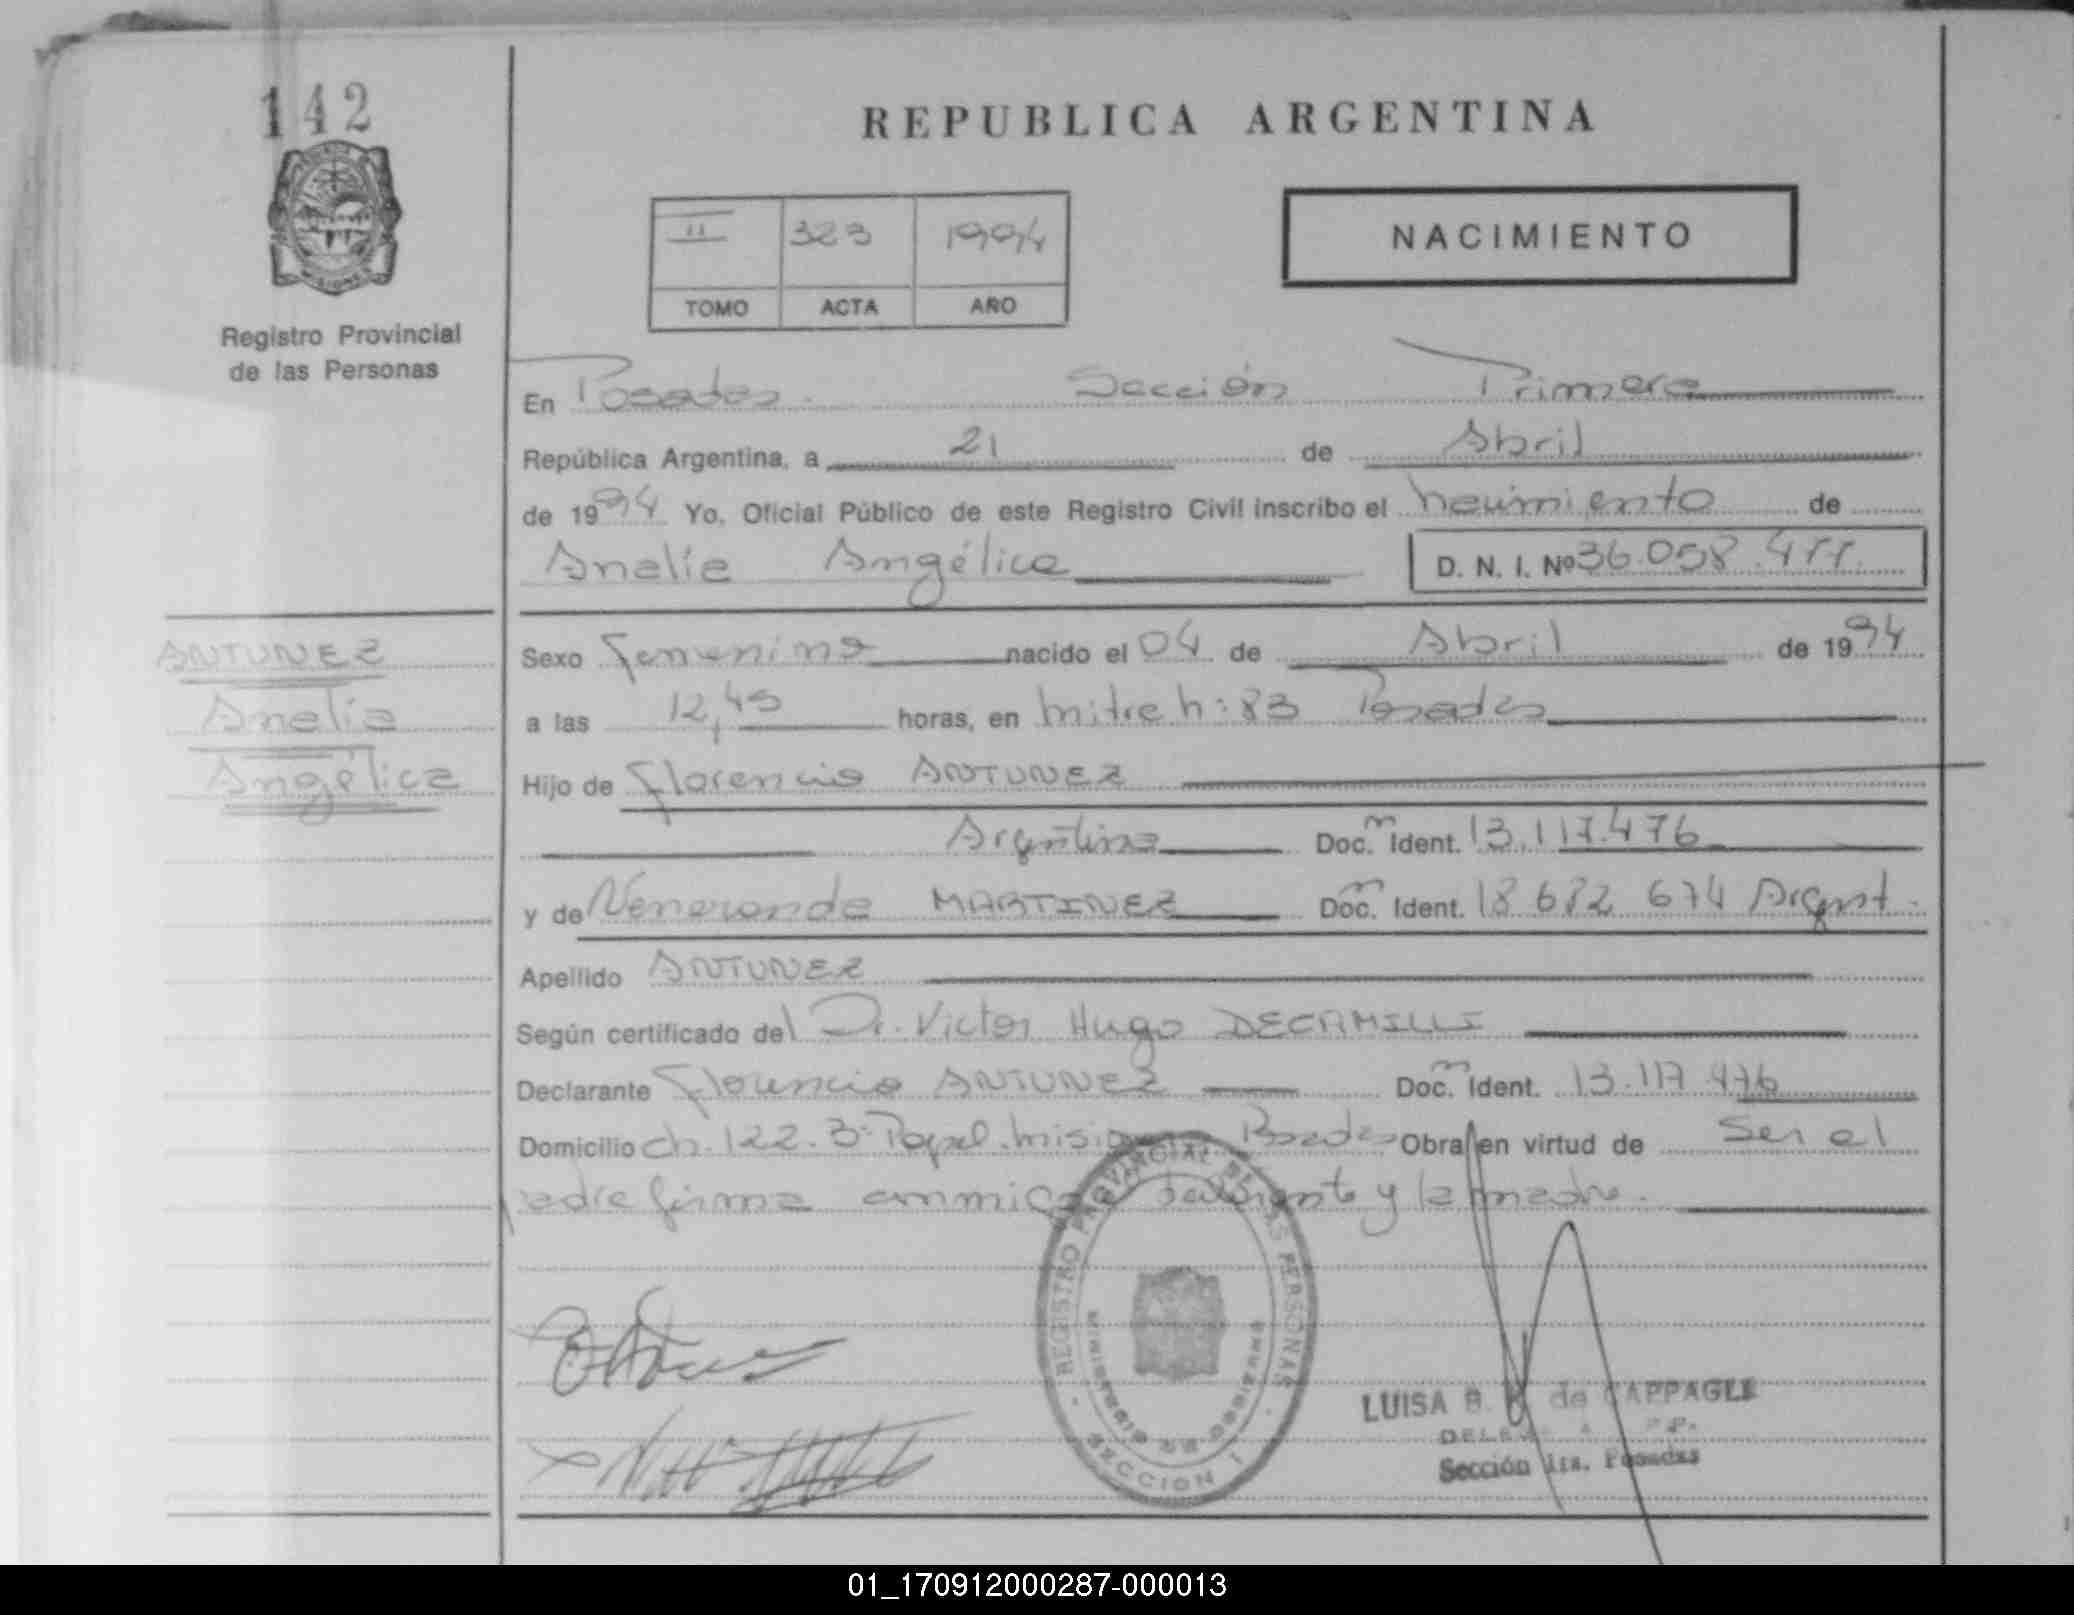 142
REPUBLICA ARGENTINA
NACIMIENTO
II 323 1994
TOMO ACTA AÑO
Registro Provincial
de las Personas
En Posadas Sección Primera
República Argentina, a 21 de Abril
de 1994 Yo, Oficial Público de este Registro Civil inscribo el nacimiento de
Analía Angélica D. N. I. Nº 36.058.477
ANTUNEZ
Analía
Angélica
Sexo femenino nacido el 04 de Abril de 1994
a las 12,45 horas, en Mitre n: 83 Posadas
Hijo de Florencio ANTUNEZ
Argentino Doc. Ident. 13.117.476
y de Veneranda MARTINEZ Doc. Ident. 18 682 674 Argent.
Apellido ANTUNEZ
Según certificado del Dr. Victor Hugo DECAMILLI
Declarante Florencio ANTUNEZ Doc. Ident. 13.117.476
Domicilio ch. 122. Bº Papel Misionero Posadas Obra en virtud de ser el
padre firma conmigo declarante y la madre.
REGISTRO PROVINCIAL DE LAS PERSONAS
SECCION 1
LUISA B. de CAPPAGLI
Sección 1ra. Posadas
01_170912000287-000013